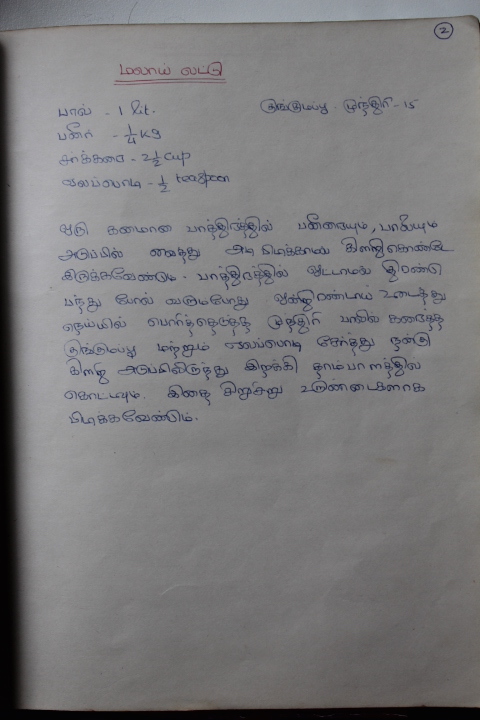 2
மலாய் லட்டு
பால் - 1 lit. குங்குமப்பூ. முந்திரி - 15
பனீர் - 1/4 Kg
சர்க்கரை - 2 1/2 Cup
ஏலப்பொடி - 1/2 teaspoon
ஒரு கனமான பாத்திரத்தில் பனீரையும், பாலையும்
அடுப்பில் வைத்து அடி பிடிக்காமல் கிளறிகொண்டே
இருக்கவேண்டும். பாத்திரத்தில் ஒட்டாமல் திரண்டு
பந்து போல் வரும்போது ஒன்றிரண்டாய் உடைத்து
நெய்யில் பொரித்தெடுத்த முந்திரி பாலில் கரைத்த
குங்குமப்பூ மற்றும் ஏலப்பொடி சேர்த்து நன்கு
கிளறி அடுப்பிலிருந்து இறக்கி தாம்பாளத்தில்
கொட்டவும். இதை சிறுசிறு உருண்டைகளாக
பிடிக்கவேண்டும்.